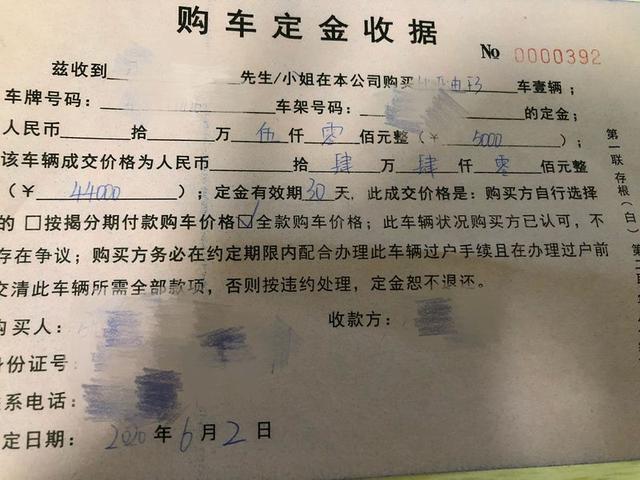 购车定金收据
No 0000392
兹收到 先生/小姐在本公司购买 车壹辆；
车牌号码： 车架号码： 的定金；
人民币 拾 万 伍 仟 零 佰元整（￥ 5000 ）；
该车辆成交价格为人民币 拾 肆 万 肆 仟 零 佰元整
（￥ 44000 ）；定金有效期 30 天，此成交价格是：购买方自行选择
的 □按揭分期付款购车价格☑全款购车价格；此车辆状况购买方已认可，不
存在争议；购买方务必在约定期限内配合办理此车辆过户手续且在办理过户前
交清此车辆所需全部款项，否则按违约处理，定金恕不退还。
购买人： 收款方：
身份证号
联系电话：
定日期： 2020 年 6 月 2 日
第一联 存根（白） 第二联